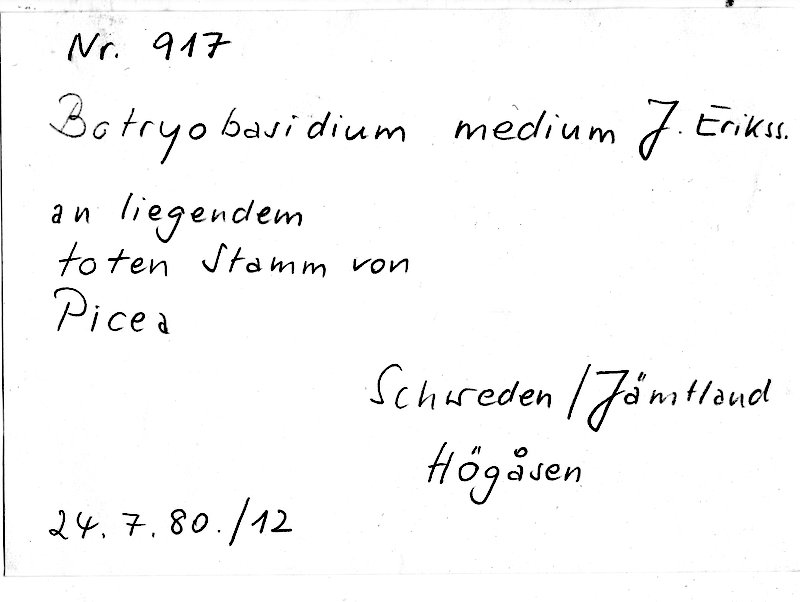 Nr. 917
Botryobasidium medium J. Erikss.
an liegendem
toten Stamm von
Picea
Schweden/Jämtland
Högåsen
24.7.80./12